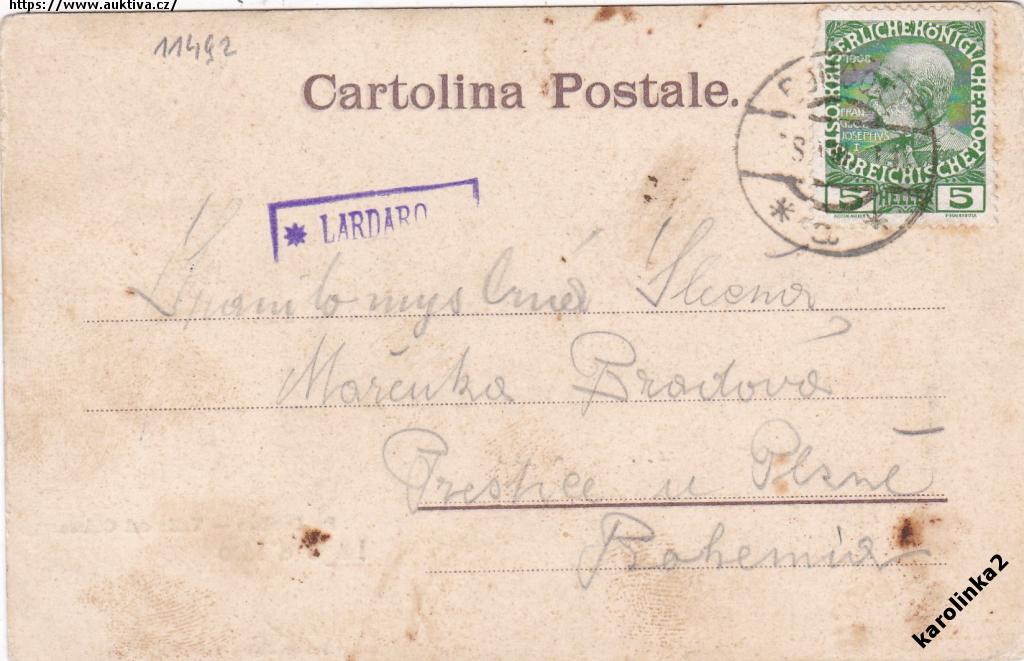 https://www.auktiva.cz/
11492
Cartolina Postale.
KAISERLICHE KÖNIGLICHE ÖSTERREICHISCHE POST
1908
FRAN
IOSEPHVS
I
5 HELLER 5
* LARDARO
Slečna
Mařenka Bradová
Prestice u Plzně
Bohemia
karolinka2